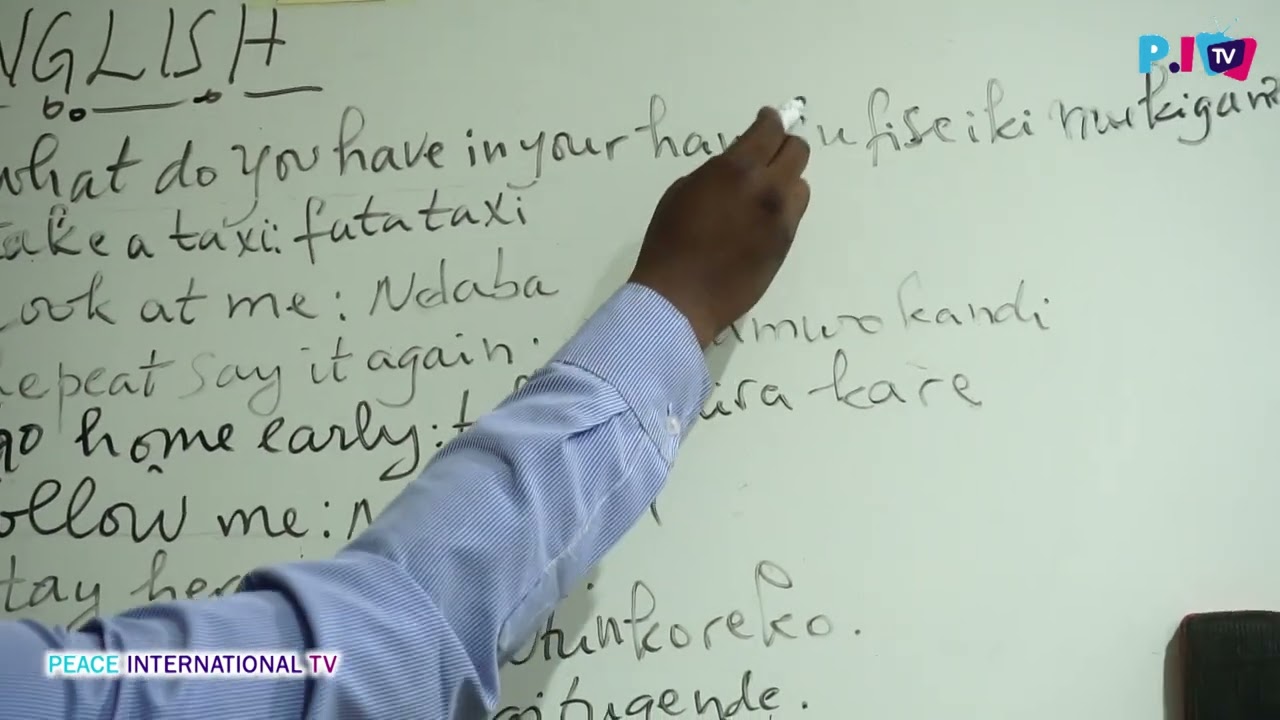 NGLISH
P.I TV
what do you have in your han u fise iki murkigan?
take a taxi: fata taxi
Look at me: Ndaba
Repeat say it again: kandi
go home early: kare
follow me:
stay here
tunkoreko.
tugende.
PEACE INTERNATIONAL TV